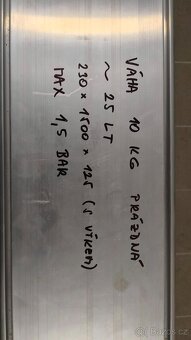 VÁHA 10 KG PRÁZDNÁ
~ 25 LT
230 x 1500 x 125 (S VÍKEM)
MAX 1,5 BAR
Bazoš.cz